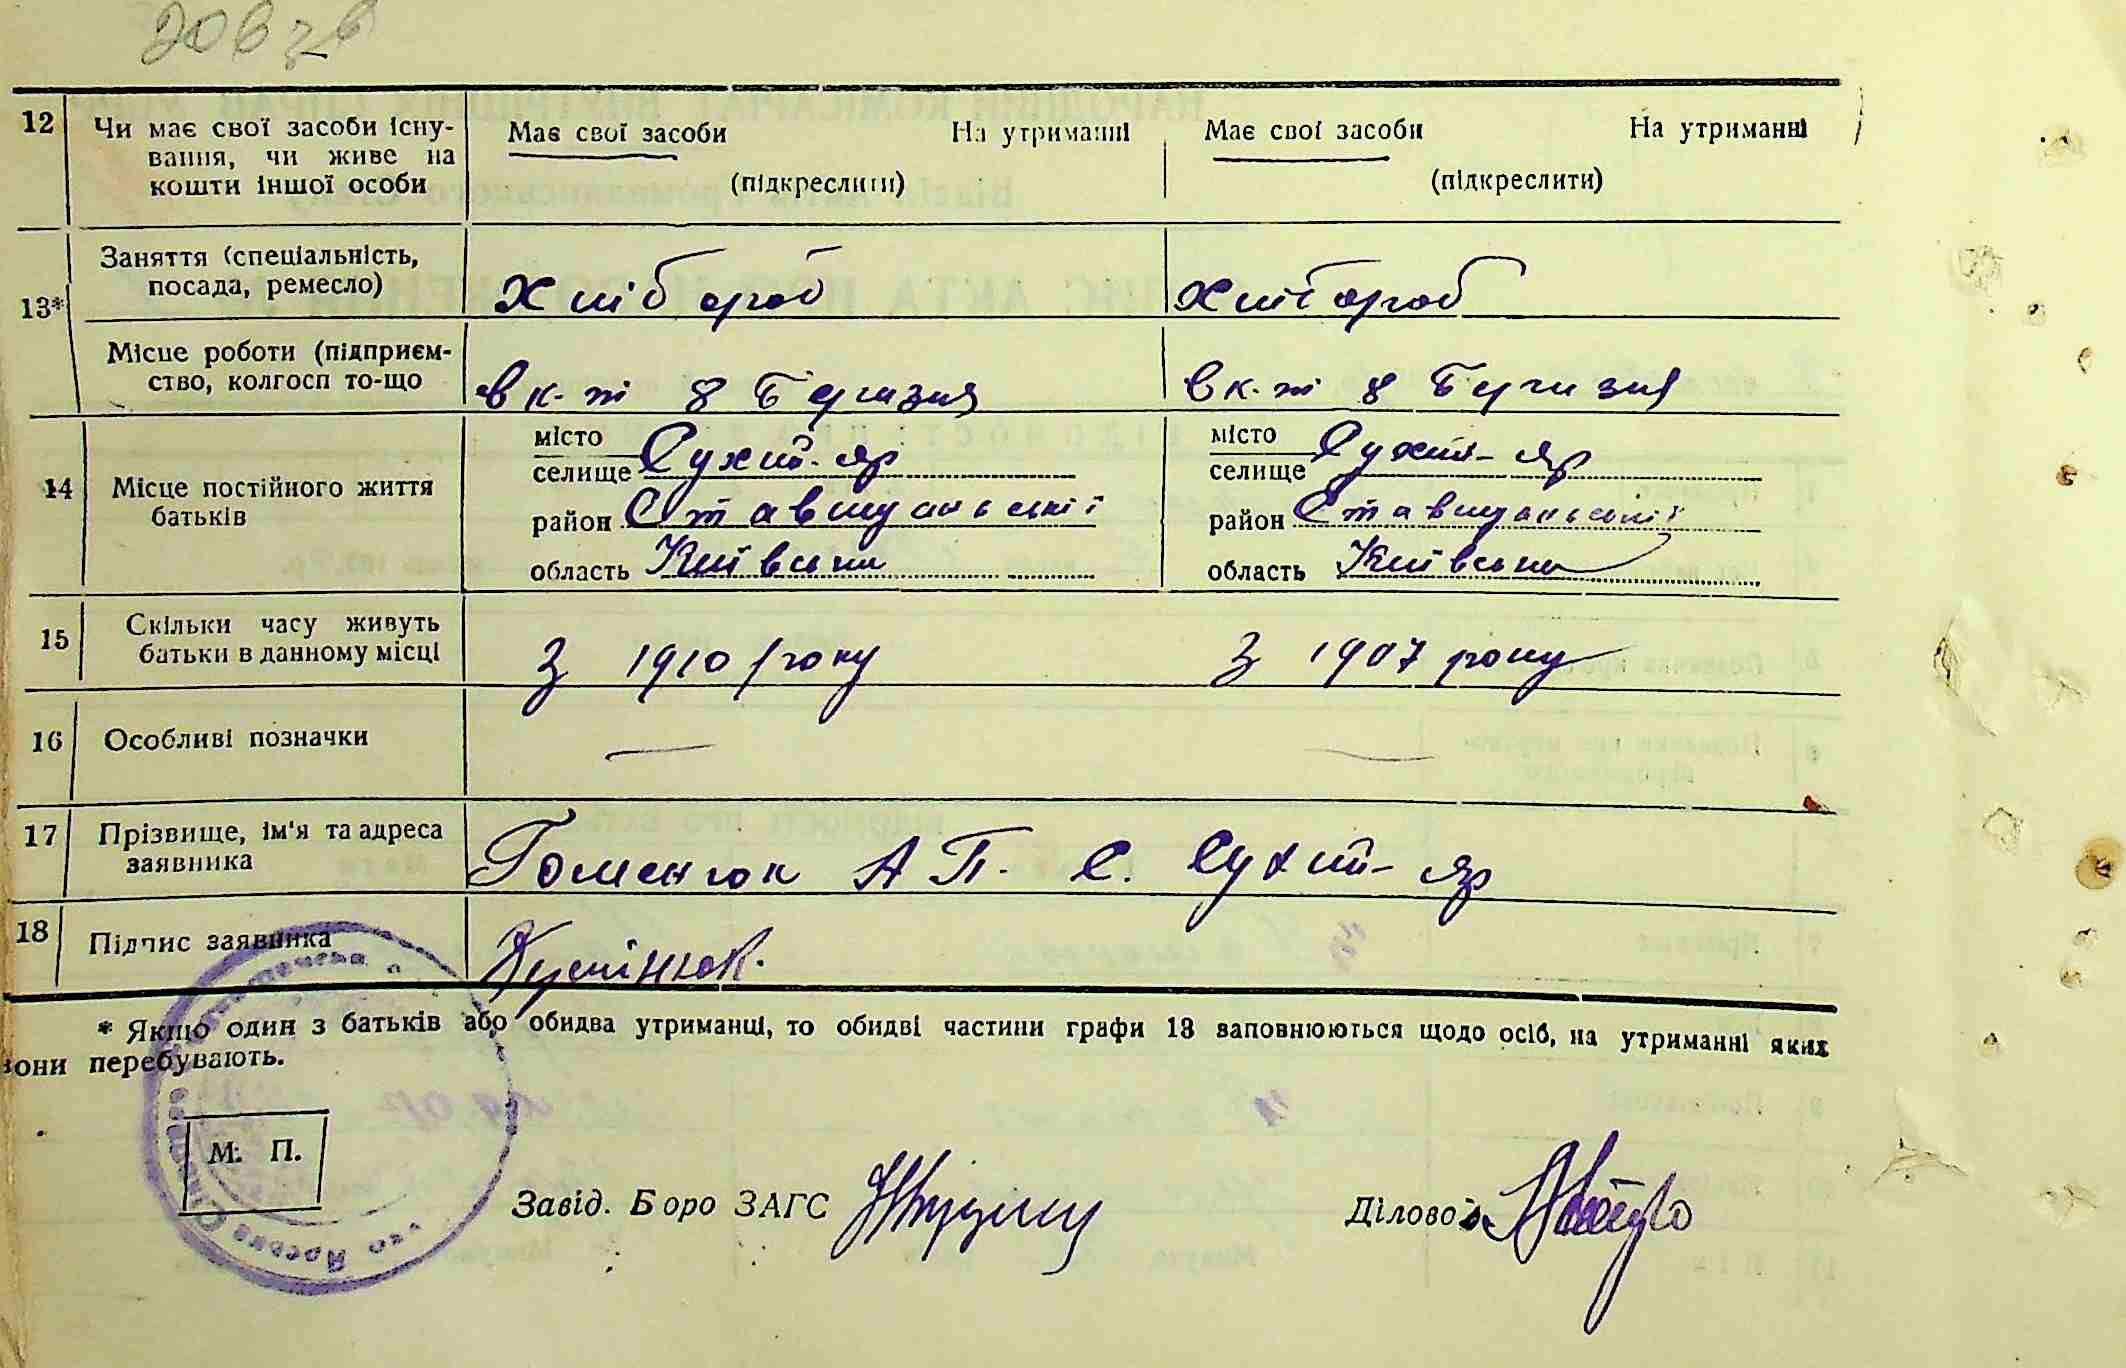 206 зв
12 Чи має свої засоби існу-
вання, чи живе на
кошти іншої особи
Має свої засоби На утриманні
(підкреслити)
Має свої засоби На утриманні
(підкреслити)
13*
Заняття (спеціальність,
посада, ремесло)
Хлібороб
Хлібороб
Місце роботи (підприєм-
ство, колгосп то-що
в к-пі 8 Березня
в к-пі 8 Березня
14 Місце постійного життя
батьків
місто
селище Сухий-яр
район Ставищанський
область Київськи
місто
селище Сухий-яр
район Ставищанський
область Київськи
15 Скільки часу живуть
батьки в данному місці
З 1910 року
З 1907 року
16 Особливі позначки
— —
17 Прізвище, ім'я та адреса
заявника
Гоменюк А П. С. Сухий-яр
18 Підпис заявника
* Якщо один з батьків або обидва утриманці, то обидві частини графи 13 заповнюються щодо осіб, на утриманні яких
вони перебувають.
М. П.
Завід. Бюро ЗАГС
Діловод